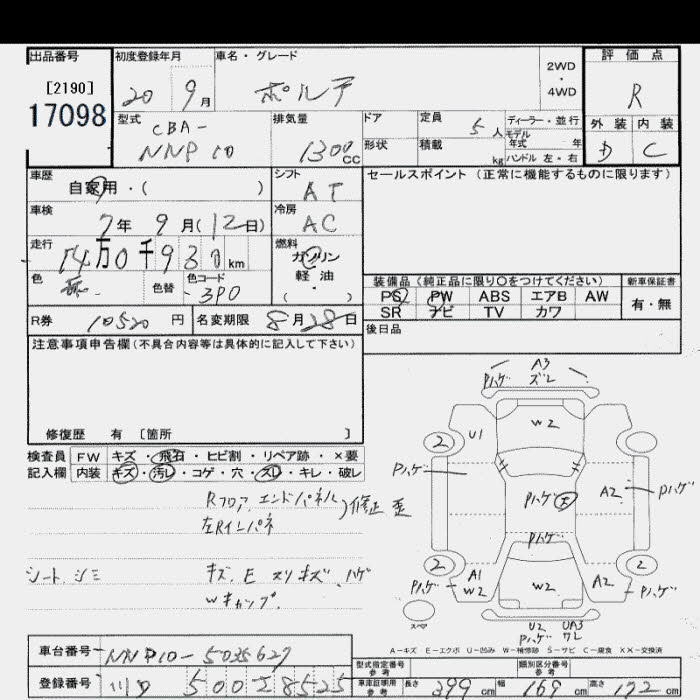 出品番号
[2190]
17098
初度登録年月
20 9月
車名・グレード
ポルテ
2WD
・
4WD
評価点
R
型式
CBA-
NNP10
排気量
1300cc
ドア
形状
定員
5人
積載
kg
ディーラー・並行
モデル
年式 年
ハンドル 左・右
外装 内装
D C
車歴
自家用・( )
シフト
AT
セールスポイント (正常に機能するものに限ります)
車検
7年 9月(12日)
冷房
AC
走行
14万0千93 km
燃料
ガソリン
軽・油
( )
色
色替
色コード
3P0
装備品 (純正品に限り○をつけてください)
新車保証書
PS PW ABS エアB AW
SR ナビ TV カワ
有・無
R券 10520円
名変期限 8月28日
後日品
注意事項申告欄 (不具合内容等は具体的に記入して下さい)
修復歴 有 [箇所 ]
検査員
記入欄
FW キズ・飛石・ヒビ割・リペア跡・×要
内装 キズ・汚レ・コゲ・穴・スレ・キレ・破レ
Rフロア、エンドパネル
左Rインパネ
修正 歪
シート シミ
キズ、E スリキズ、ハゲ
Wキャップ
A3
Pハゲ ズレ
W2
U1
2
2
Pハゲ
Pハゲ
A2
Pハゲ
Pハゲ
2
2
Pハゲ
A1
W2
W2
A2
Pハゲ
スペア
U2 UA3
Pハゲ ワレ
A-キズ E-エクボ U-凹み W-補修跡 S-サビ C-腐食 XX-交換済
車台番号 NNP10-5035627
登録番号 500 28525
型式指定番号
参考
類別区分番号
参考
車庫証明用
参考
長さ 399cm 幅 169cm 高さ 172cm